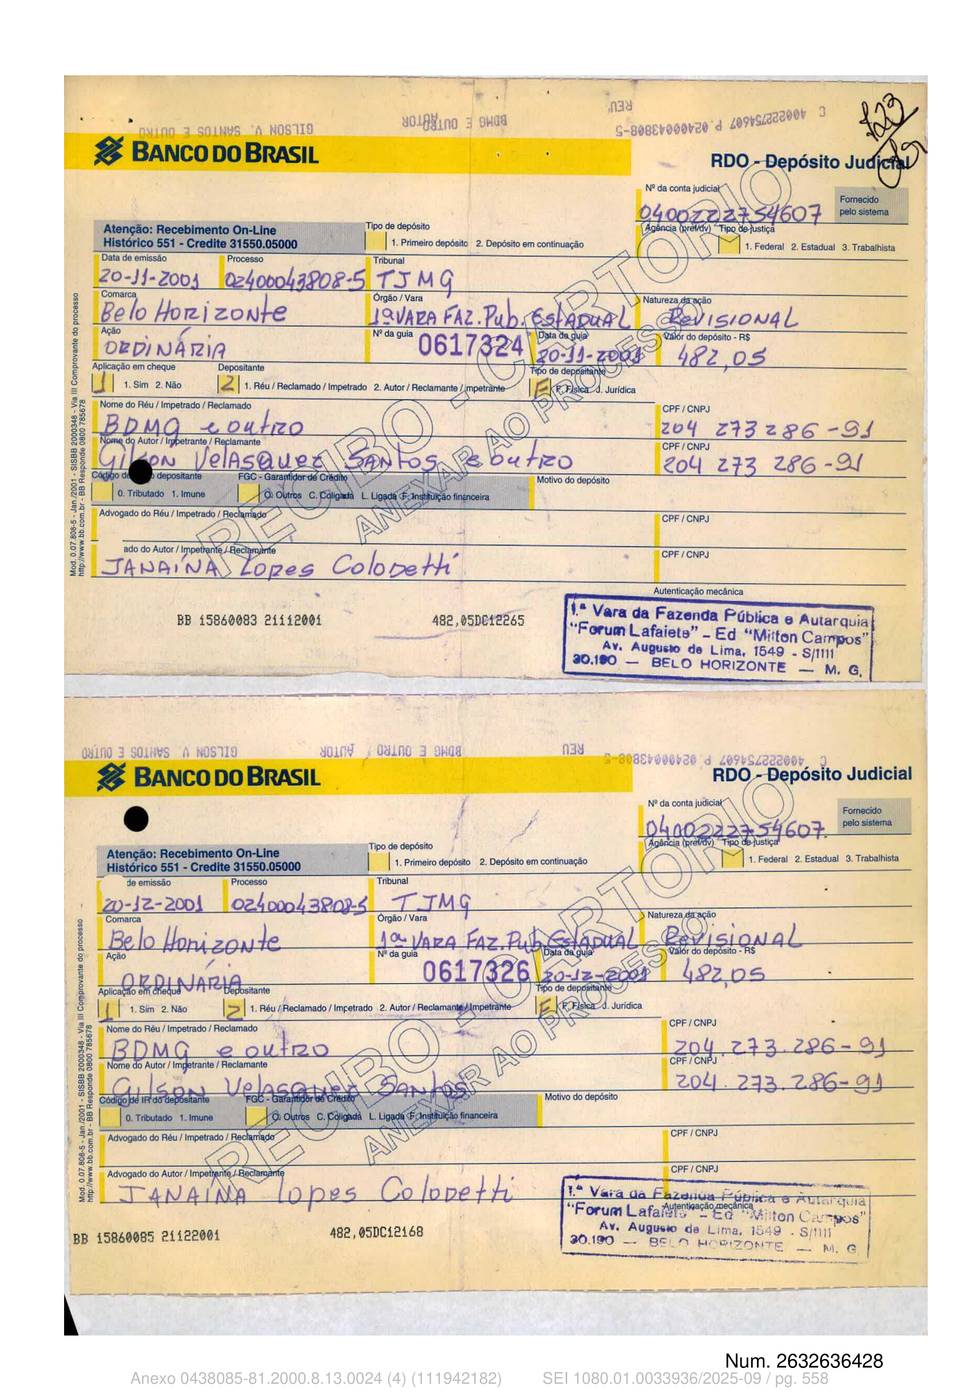 C 400222754607 P. 02400043808-5
REU
BDMG E OUTRO
AUTOR
GILSON V. SANTOS E OUTRO
BANCO DO BRASIL
RDO - Depósito Judicial
Nº da conta judicial
0400222754607
Fornecido pelo sistema
Atenção: Recebimento On-Line
Histórico 551 - Credite 31550.05000
Tipo de depósito
1. Primeiro depósito 2. Depósito em continuação
Agência (pref/dv) Tipo de justiça
1. Federal 2. Estadual 3. Trabalhista
Data de emissão Processo Tribunal
20-11-2001 02400043808-5 TJMG
Comarca Órgão / Vara Natureza da ação
Belo Horizonte 1ª VARA FAZ. Pub. ESTADUAL REVISIONAL
Ação Nº da guia Data da guia Valor do depósito - R$
ORDINÁRIA 0617324 20-11-2001 482,05
Aplicação em cheque Depositante Tipo de depositante
1 1. Sim 2. Não 2 1. Réu / Reclamado / Impetrado 2. Autor / Reclamante / Impetrante F F. Física J. Jurídica
Nome do Réu / Impetrado / Reclamado CPF / CNPJ
BDMG e outro 204 273 286-91
Nome do Autor / Impetrante / Reclamante CPF / CNPJ
Gilson Velasquez Santos e outro 204 273 286-91
Código de depositante FGC - Garantidor de Crédito Motivo do depósito
0. Tributado 1. Imune O. Outros C. Coligada L. Ligada F. Instituição financeira
Advogado do Réu / Impetrado / Reclamado CPF / CNPJ
ado do Autor / Impetrante / Reclamante CPF / CNPJ
JANAÍNA Lopes Colodetti
Autenticação mecânica
BB 15860083 21112001 482,05DC12265
1.ª Vara da Fazenda Pública e Autarquia
"Forum Lafaiete" - Ed "Milton Campos"
Av. Augusto de Lima, 1549 - S/1111
30.190 — BELO HORIZONTE — M. G.
RECIBO - CARTÓRIO
ANEXAR AO PROCESSO
Mod. 0.07.808-5 - Jan./2001 - SISBB 2000348 - Via III Comprovante do processo
http://www.bb.com.br - BB Responde 0800 785678
C 400222754607 P. 02400043808-5
REU
BDMG E OUTRO
AUTOR
GILSON V. SANTOS E OUTRO
BANCO DO BRASIL
RDO - Depósito Judicial
Nº da conta judicial
0400222754607
Fornecido pelo sistema
Atenção: Recebimento On-Line
Histórico 551 - Credite 31550.05000
Tipo de depósito
1. Primeiro depósito 2. Depósito em continuação
Agência (pref/dv) Tipo de justiça
1. Federal 2. Estadual 3. Trabalhista
de emissão Processo Tribunal
20-12-2001 02400043808-5 TJMG
Comarca Órgão / Vara Natureza da ação
Belo Horizonte 1ª VARA FAZ. Pub. ESTADUAL REVISIONAL
Ação Nº da guia Data da guia Valor do depósito - R$
ORDINÁRIA 0617326 20-12-2001 482,05
Aplicação em cheque Depositante Tipo de depositante
1 1. Sim 2. Não 2 1. Réu / Reclamado / Impetrado 2. Autor / Reclamante / Impetrante F F. Física J. Jurídica
Nome do Réu / Impetrado / Reclamado CPF / CNPJ
BDMG e outro 204.273.286-91
Nome do Autor / Impetrante / Reclamante CPF / CNPJ
Gilson Velasquez Santos 204.273.286-91
Código de IR do depositante FGC - Garantidor de Crédito Motivo do depósito
0. Tributado 1. Imune O. Outros C. Coligada L. Ligada F. Instituição financeira
Advogado do Réu / Impetrado / Reclamado CPF / CNPJ
Advogado do Autor / Impetrante / Reclamante CPF / CNPJ
JANAINA Lopes Colodetti
Autenticação mecânica
BB 15860085 21122001 482,05DC12168
1.ª Vara da Fazenda Pública e Autarquia
"Forum Lafaiete" - Ed "Milton Campos"
Av. Augusto de Lima, 1549 - S/1111
30.190 — BELO HORIZONTE — M. G
RECIBO - CARTÓRIO
ANEXAR AO PROCESSO
Mod. 0.07.808-5 - Jan./2001 - SISBB 2000348 - Via III Comprovante do processo
http://www.bb.com.br - BB Responde 0800 785678
Num. 2632636428
Anexo 0438085-81.2000.8.13.0024 (4) (111942182) SEI 1080.01.0033936/2025-09 / pg. 558